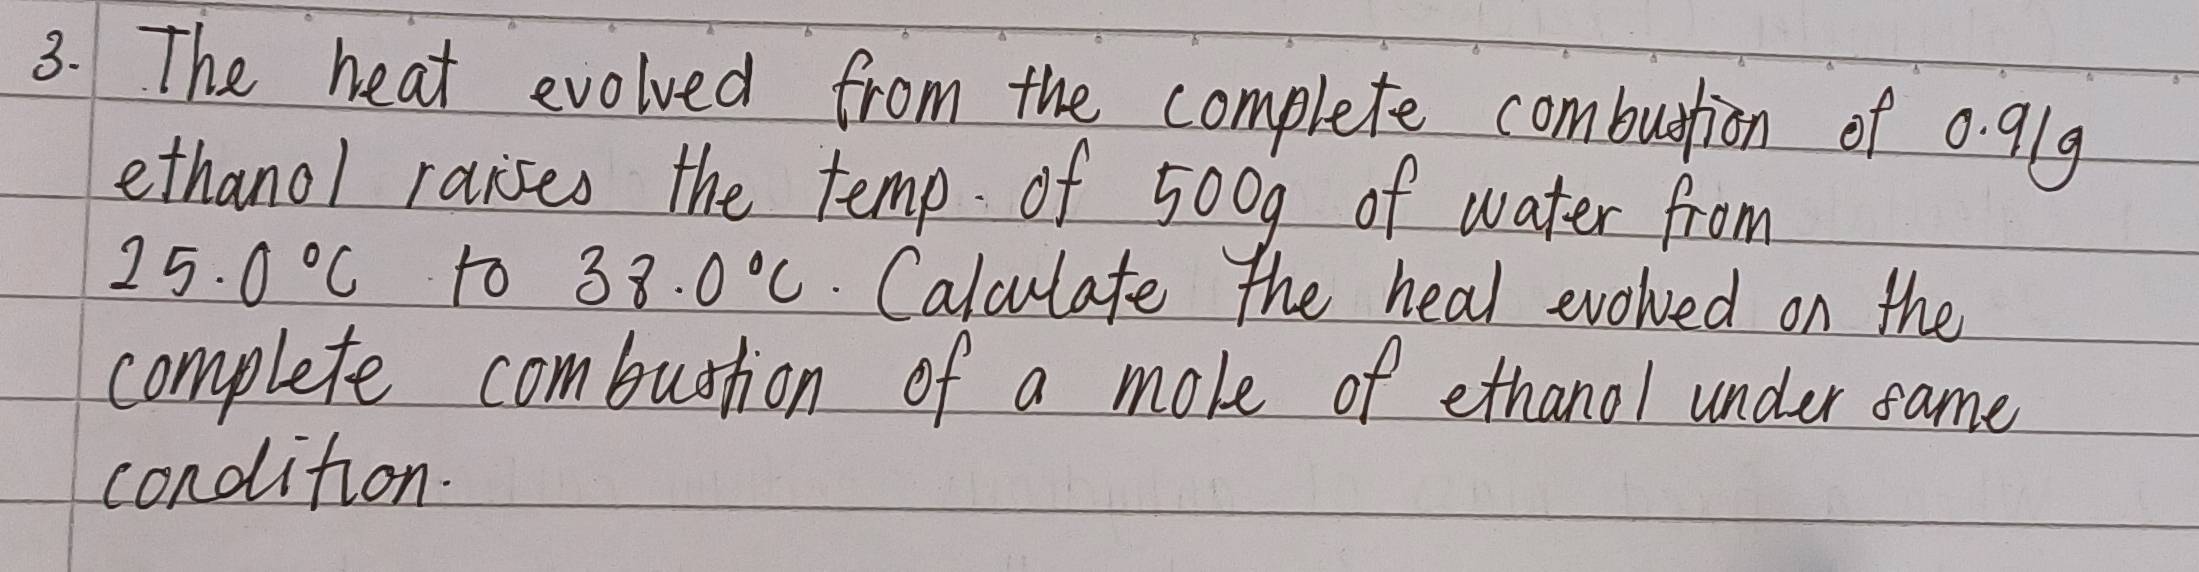 3. The heat evolved from the complete combustion of 0.91g
ethanol raises the temp. of 500g of water from
25.0°C to 38.0°C. Calculate the heal evolved on the
complete combustion of a mole of ethanol under same
condition.